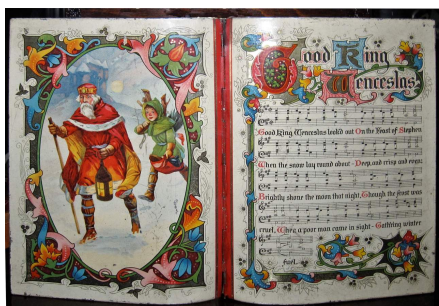 Good King
Wenceslas
Good King Wenceslas look'd out On the Feast of Stephen
When the snow lay round about - Deep and crisp and even:
Brightly shone the moon that night, Though the frost was
cruel, When a poor man came in sight - Gath'ring winter
fuel.